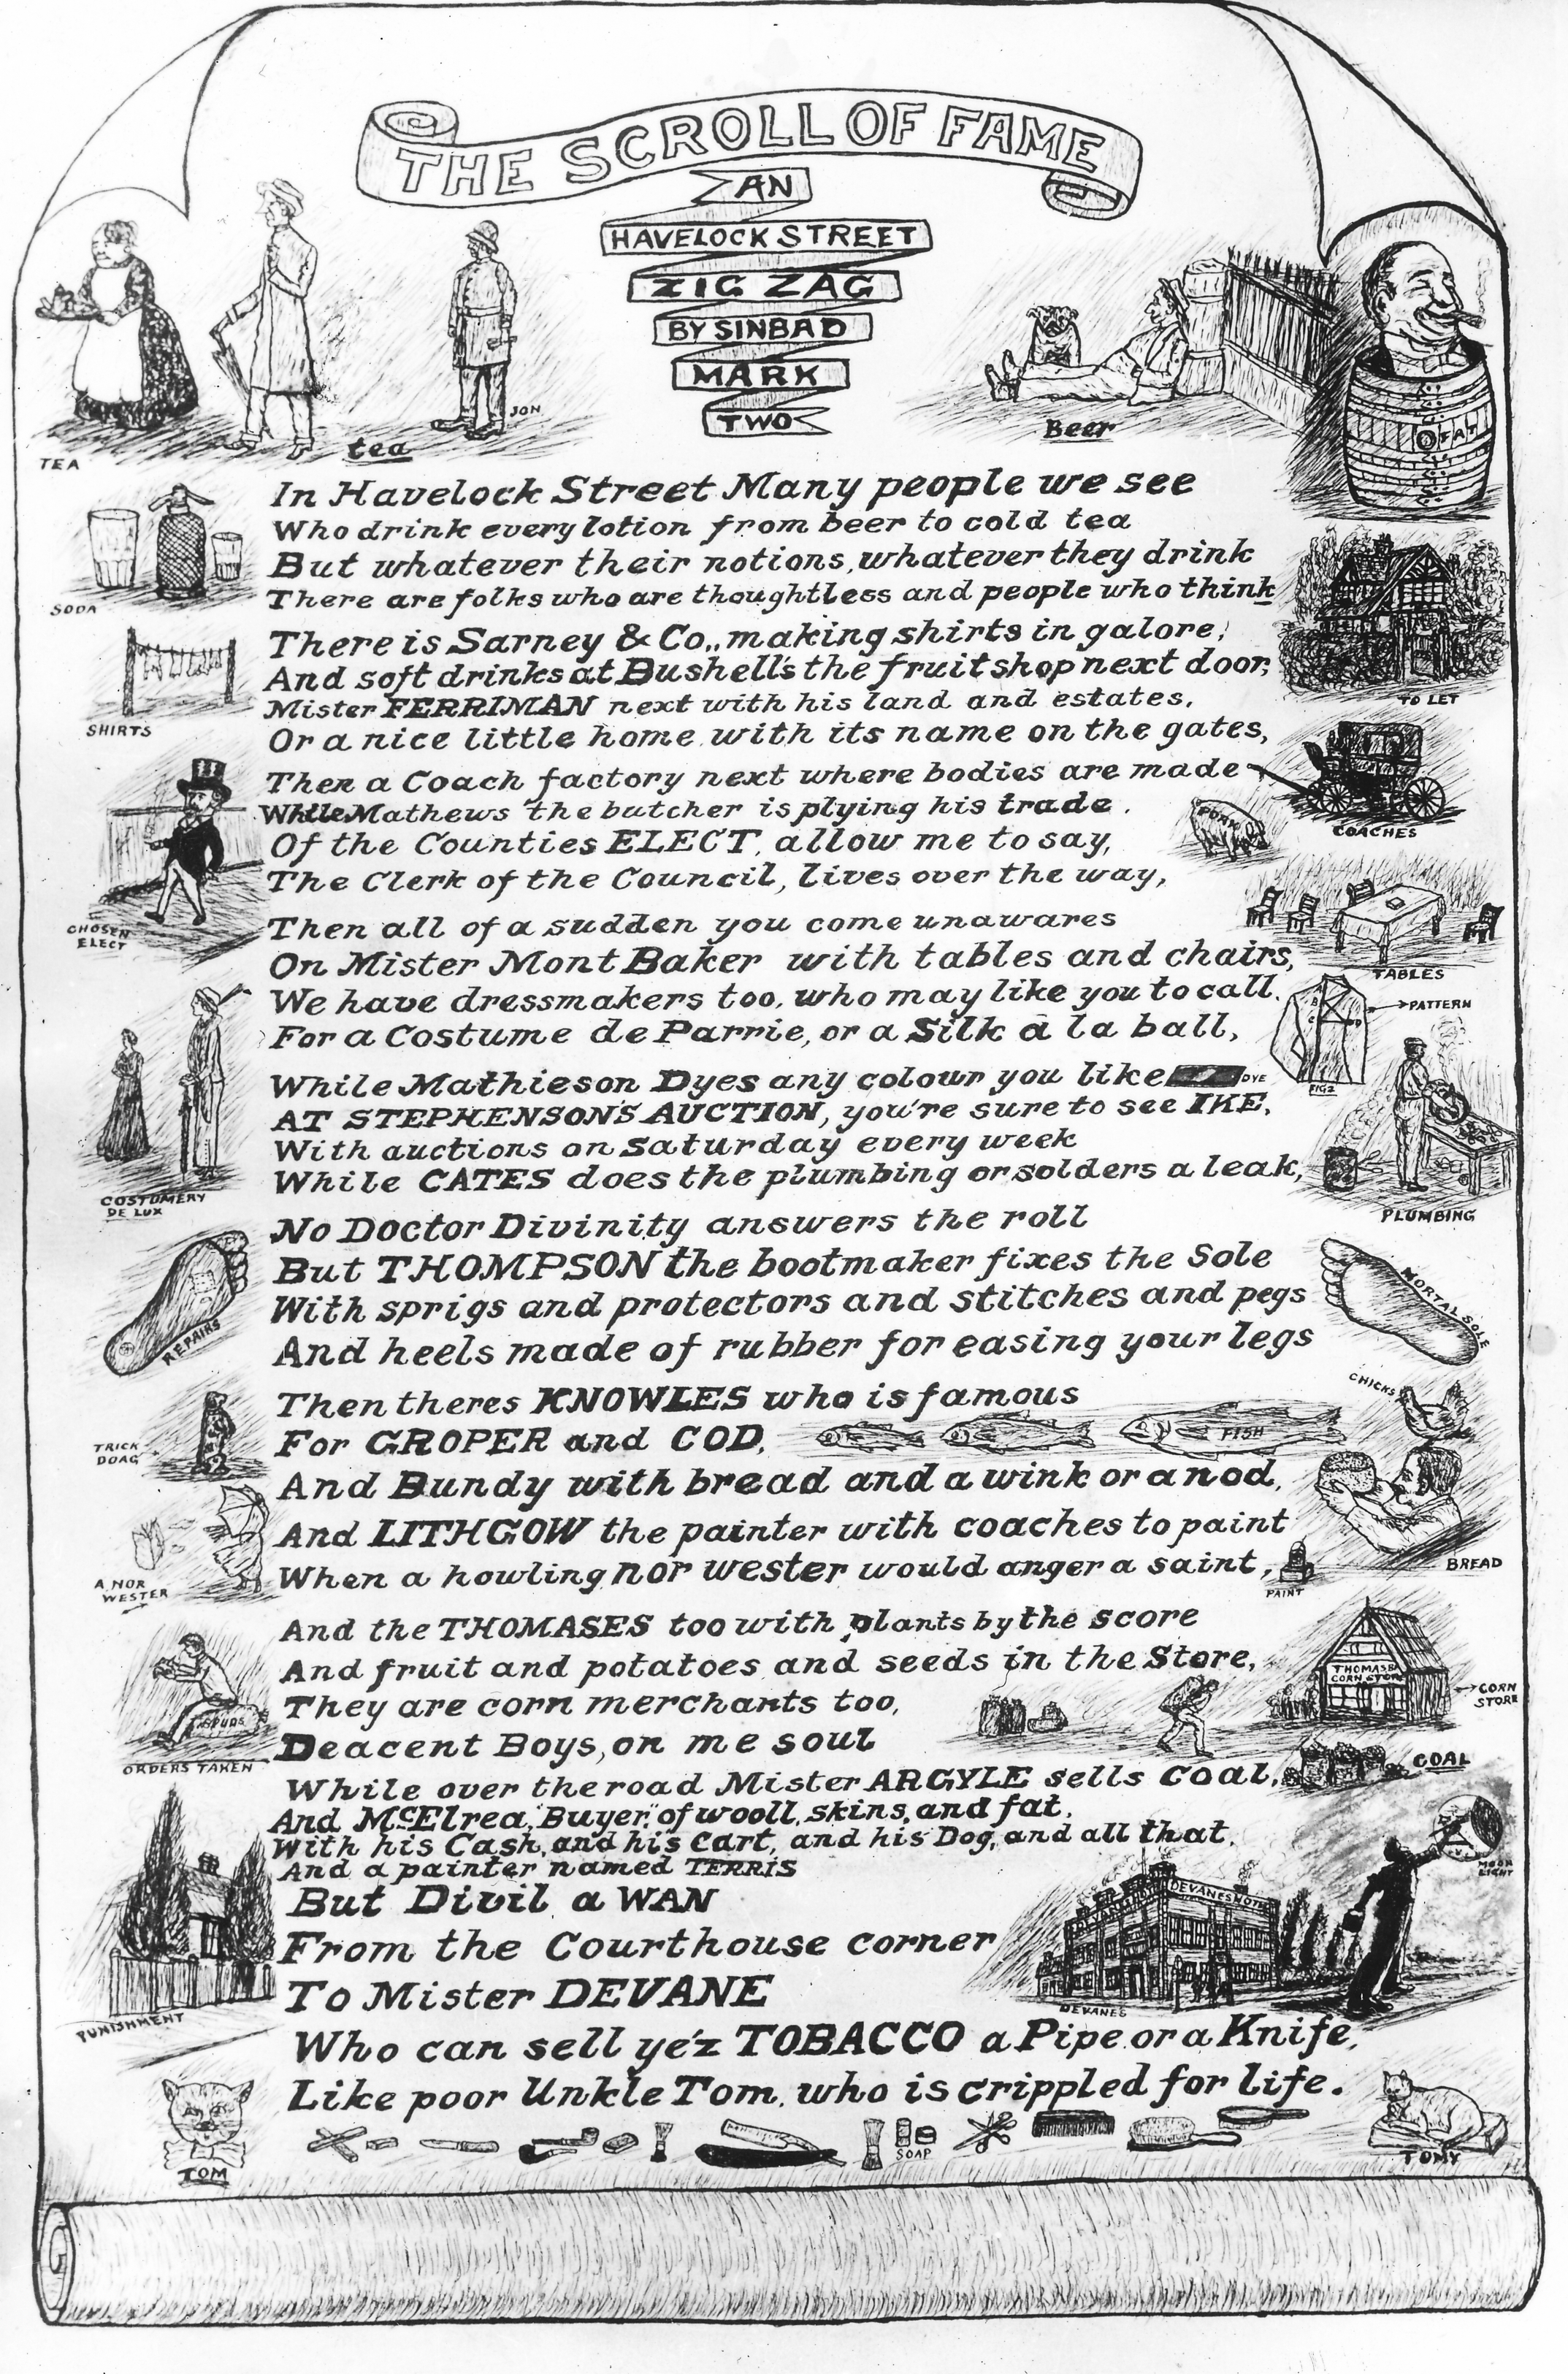 THE SCROLL OF FAME
AN
HAVELOCK STREET
ZIG ZAG
BY SINBAD
MARK
TWO
JON
TEA
tea
Beer
FAT
In Havelock Street Many people we see
Who drink every lotion from beer to cold tea
But whatever their notions, whatever they drink
There are folks who are thoughtless and people who think
SODA
There is Sarney & Co., making shirts in galore,
And soft drinks at Bushell's the fruitshop next door,
Mister FERRIMAN next with his land and estates,
Or a nice little home with its name on the gates,
SHIRTS
TO LET
Then a Coach factory next where bodies are made
While Mathews the butcher is plying his trade.
Of the Counties ELECT, allow me to say,
The Clerk of the Council, lives over the way,
PORK
COACHES
CHOSEN
ELECT
Then all of a sudden you come unawares
On Mister Mont Baker with tables and chairs,
We have dressmakers too, who may like you to call,
For a Costume de Parrie, or a Silk a la ball,
TABLES
PATTERN
FIG 2
While Mathieson Dyes any colour you like DYE
AT STEPHENSON'S AUCTION, you're sure to see IKE,
With auctions on Saturday every week
While CATES does the plumbing or solders a leak,
COSTUMERY
DE LUX
PLUMBING
No Doctor Divinity answers the roll
But THOMPSON the bootmaker fixes the Sole
With sprigs and protectors and stitches and pegs
And heels made of rubber for easing your legs
REPAIRS
MORTAL SOLE
Then theres KNOWLES who is famous
For GROPER and COD,
FISH
CHICKS
And Bundy with bread and a wink or a nod,
And LITHGOW the painter with coaches to paint
When a howling nor wester would anger a saint,
TRICK
DOAG
A NOR
WESTER
PAINT
BREAD
And the THOMASES too with plants by the score
And fruit and potatoes and seeds in the Store,
They are corn merchants too,
Deacent Boys, on me soul
THOMAS
CORN STORE
CORN
STORE
SPUDS
ORDERS TAKEN
While over the road Mister ARGYLE sells coal,
COAL
And McElrea, "Buyer," of wooll, skins, and fat,
With his Cash, and his Cart, and his Dog, and all that,
And a painter named TERRIS
But Divil a WAN
From the Courthouse corner
To Mister DEVANE
MOON
LIGHT
DEVANES HOTEL
DEVANES
PUNISHMENT
Who can sell ye'z TOBACCO a Pipe or a Knife,
Like poor Unkle Tom, who is crippled for life.
SOAP
TOM
TOMY